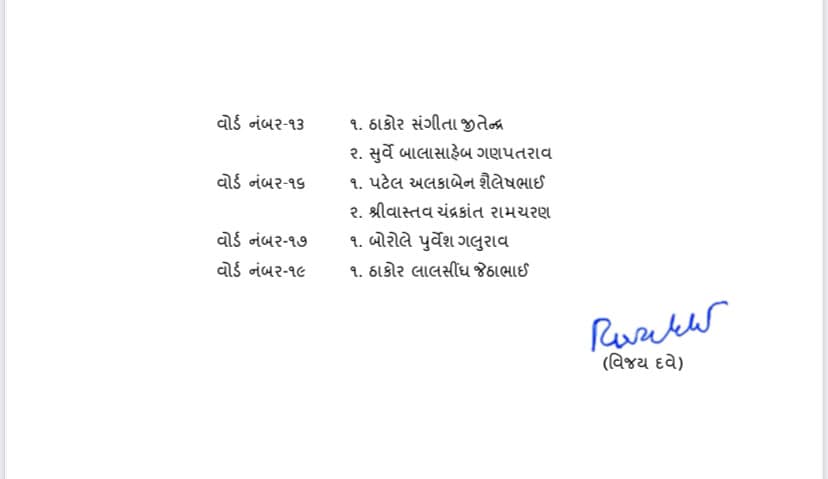 વોર્ડ નંબર-૧૩ ૧. ઠાકોર સંગીતા જીતેન્દ્ર
૨. સુર્વે બાલાસાહેબ ગણપતરાવ
વોર્ડ નંબર-૧૬ ૧. પટેલ અલકાબેન શૈલેષભાઈ
૨. શ્રીવાસ્તવ ચંદ્રકાંત રામચરણ
વોર્ડ નંબર-૧૭ ૧. બોરોલે પુર્વેશ ગલુરાવ
વોર્ડ નંબર-૧૯ ૧. ઠાકોર લાલસીંઘ જેઠાભાઈ
(વિજય દવે)